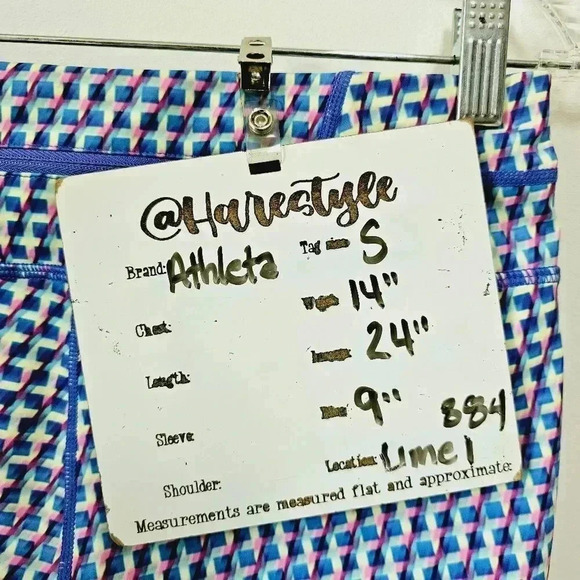 @Harestyle
Brand: Athleta
Tag size S
Chest:
Waist 14"
Length:
Inseam 24"
Sleeve:
Rise 9"
884
Shoulder:
Location: Lime 1
Measurements are measured flat and approximate.